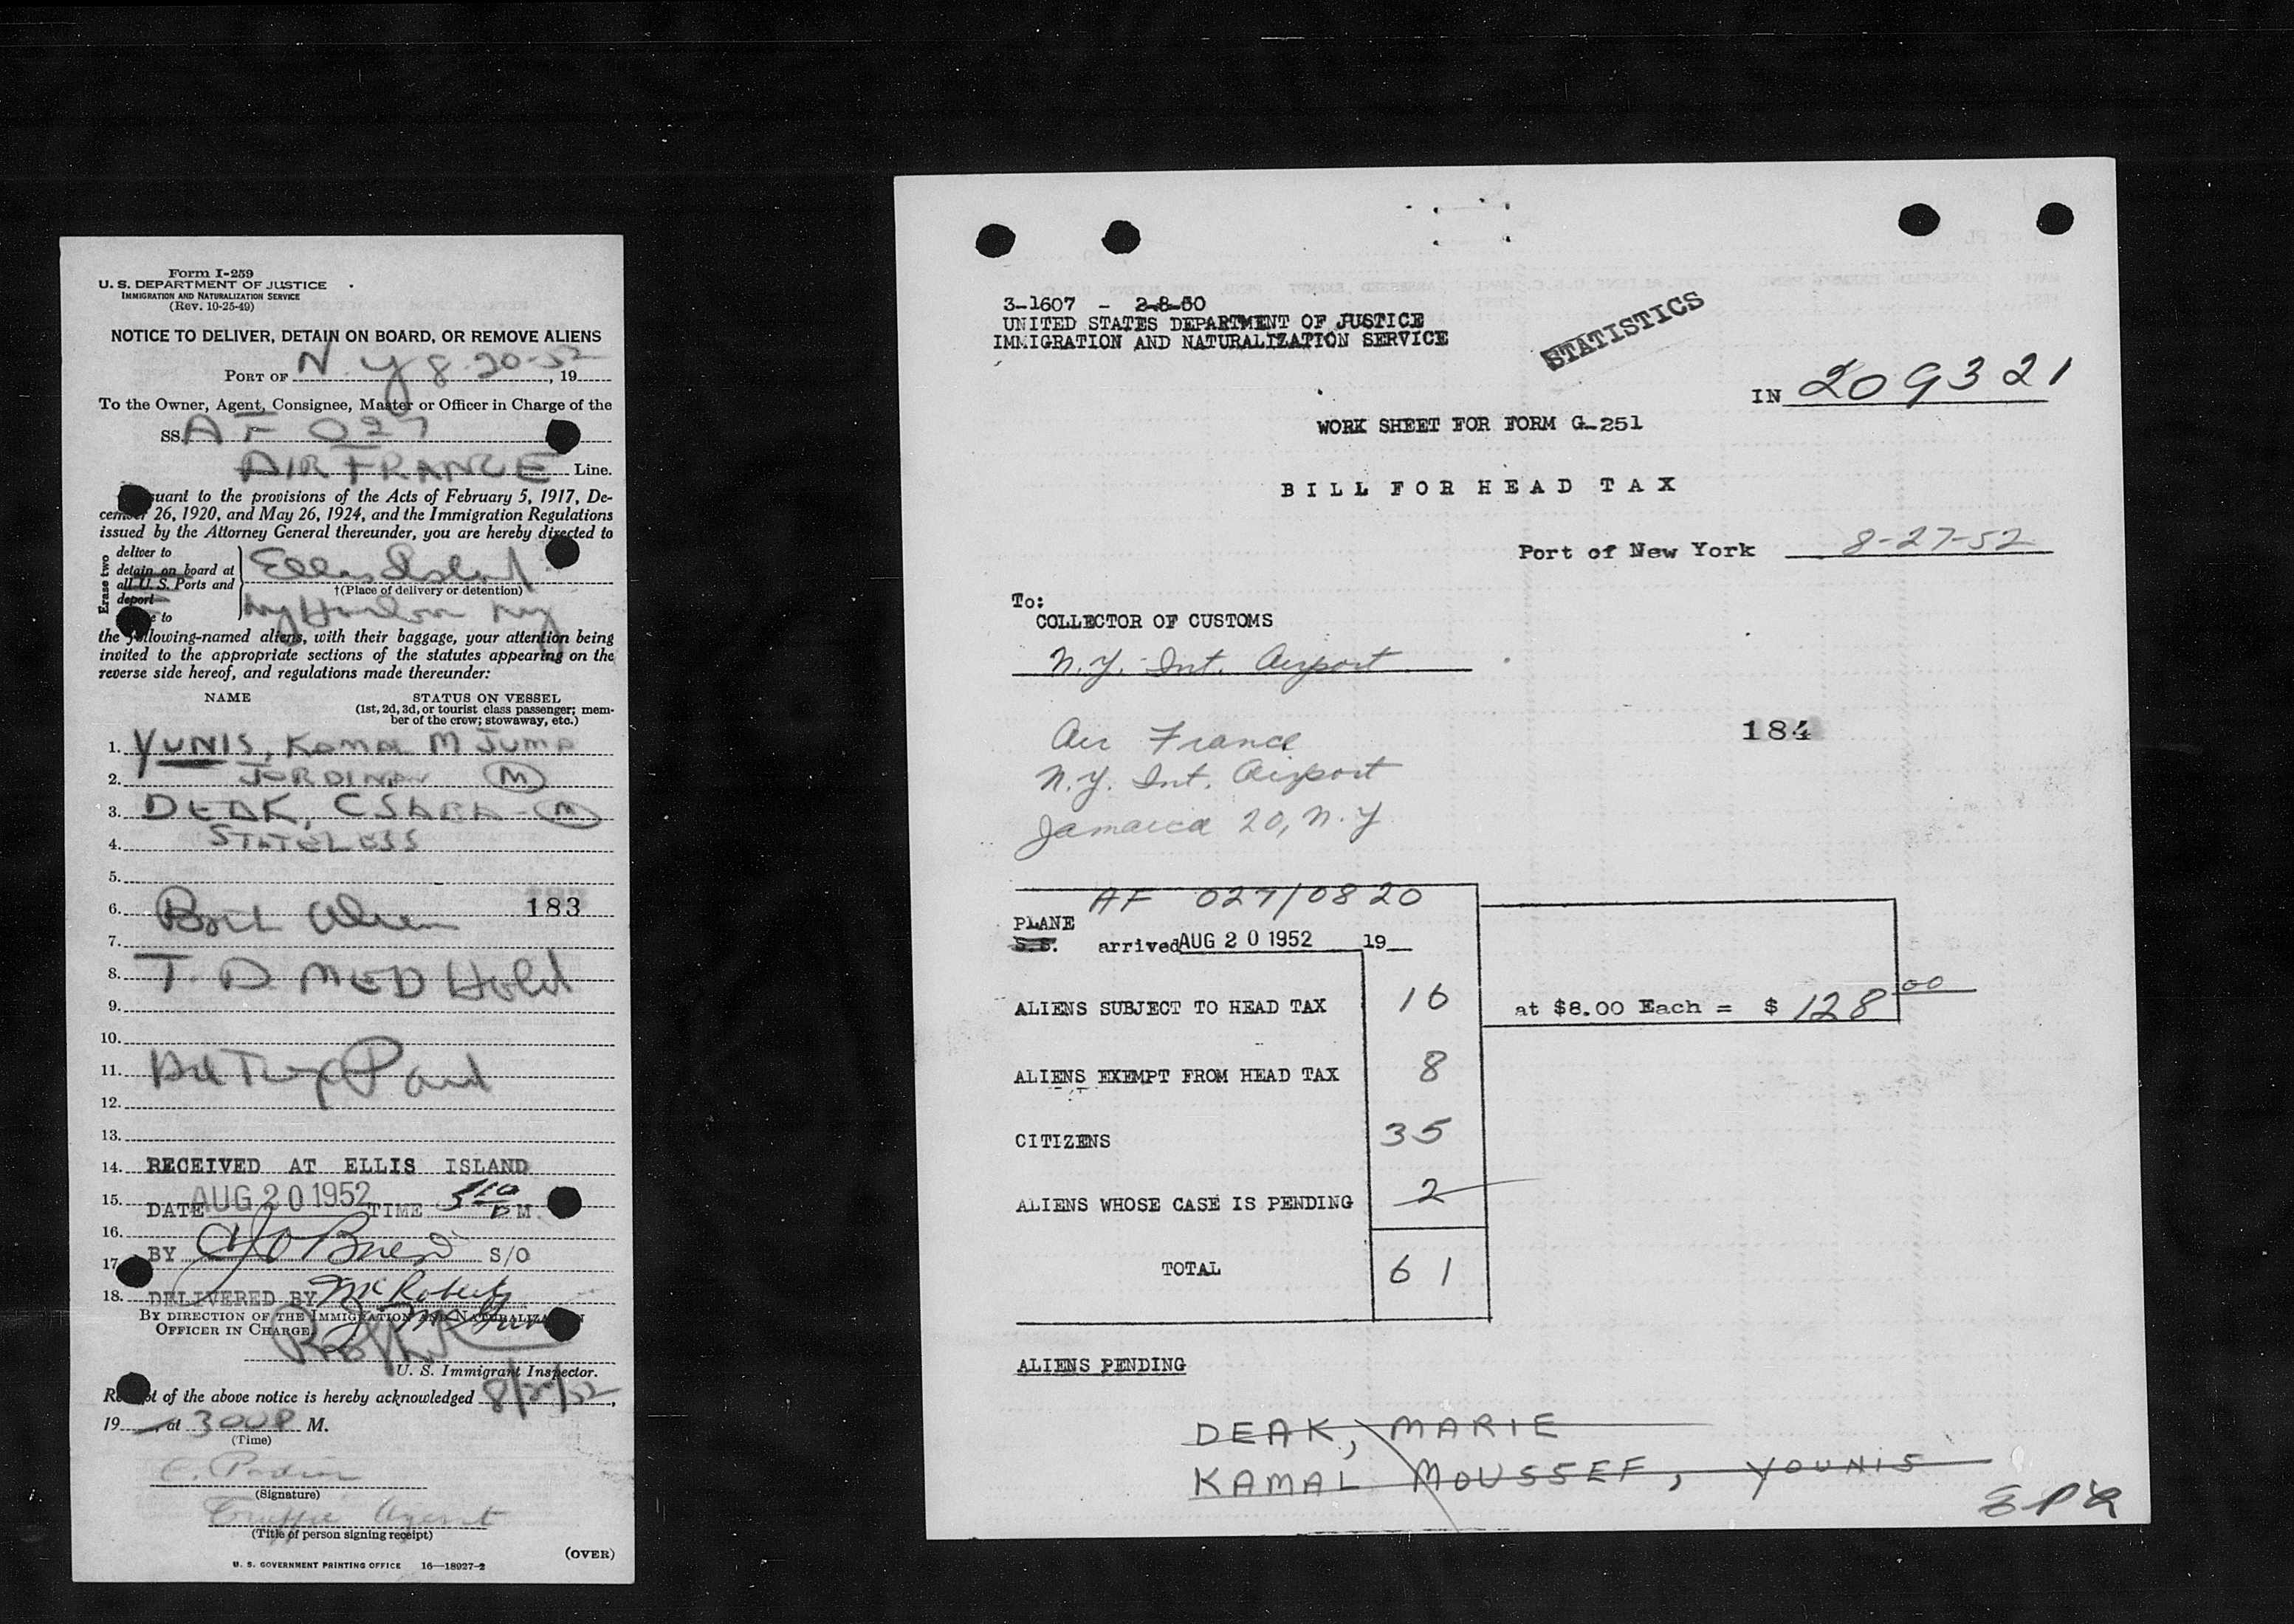 Form I-259
U. S. DEPARTMENT OF JUSTICE
IMMIGRATION AND NATURALIZATION SERVICE
(Rev. 10-25-49)
NOTICE TO DELIVER, DETAIN ON BOARD, OR REMOVE ALIENS
PORT OF N. Y 8-20-52, 19
To the Owner, Agent, Consignee, Master or Officer in Charge of the
SS. AF 027
AIR FRANCE Line.
suant to the provisions of the Acts of February 5, 1917, De-
cember 26, 1920, and May 26, 1924, and the Immigration Regulations
issued by the Attorney General thereunder, you are hereby directed to
Erase two
deliver to
detain on board at
all U. S. Ports and
deport
e to
Ellis Island
†(Place of delivery or detention)
ny Harbor ny
the following-named aliens, with their baggage, your attention being
invited to the appropriate sections of the statutes appearing on the
reverse side hereof, and regulations made thereunder:
NAME STATUS ON VESSEL
(1st, 2d, 3d, or tourist class passenger; mem-
ber of the crew; stowaway, etc.)
1. YUNIS, Kamal M Juma
2. JORDINAN (M)
3. DEAK, CSARA - (M)
4. STATELESS
5.
6. 183
7.
8. T. D MED Hold
9.
10.
11. Paid
12.
13.
14. RECEIVED AT ELLIS ISLAND
15. DATE AUG 20 1952 TIME 5 10 P M
16.
17. BY O'Brien S/O
18. DELIVERED BY McRoberts
BY DIRECTION OF THE IMMIGRATION AND NATURALIZATION
OFFICER IN CHARGE.
U. S. Immigrant Inspector.
Receipt of the above notice is hereby acknowledged 8/20/52,
19 at 300 P M.
(Time)
(Signature)
Traffic Agent
(Title of person signing receipt)
(OVER)
U. S. GOVERNMENT PRINTING OFFICE 16—18927-2
3-1607 - 2-8-50
UNITED STATES DEPARTMENT OF JUSTICE
IMMIGRATION AND NATURALIZATION SERVICE
STATISTICS
IN 209321
WORK SHEET FOR FORM G-251
BILL FOR HEAD TAX
Port of New York 8-27-52
To:
COLLECTOR OF CUSTOMS
N.Y. Int. Airport
184
Air France
N.Y. Int. Airport
Jamaica 20, N.Y
AF 027/0820
PLANE
S.S. arrived AUG 20 1952 19
ALIENS SUBJECT TO HEAD TAX 16 at $8.00 Each = $ 128 00
ALIENS EXEMPT FROM HEAD TAX 8
CITIZENS 35
ALIENS WHOSE CASE IS PENDING 2
TOTAL 61
ALIENS PENDING
DEAK, MARIE
KAMAL MOUSSEF, YOUNIS